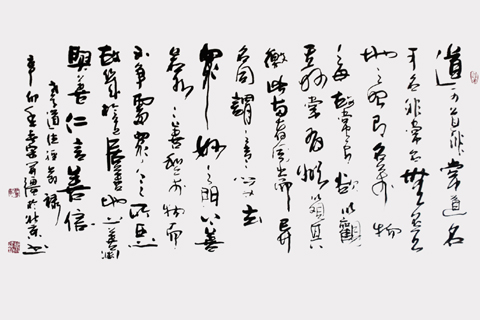 道可道非常道名
可名非常名無名天
地之始有名萬物
之母故常無欲以觀
其妙常有欲以觀其
徼此兩者同出而異
名同謂之玄之又玄
眾妙之門上善
若水水善利萬物而
不争處眾人之所惡
故幾於道居善地心善淵
與善仁言善信
老子道德經節錄
辛卯年於北京